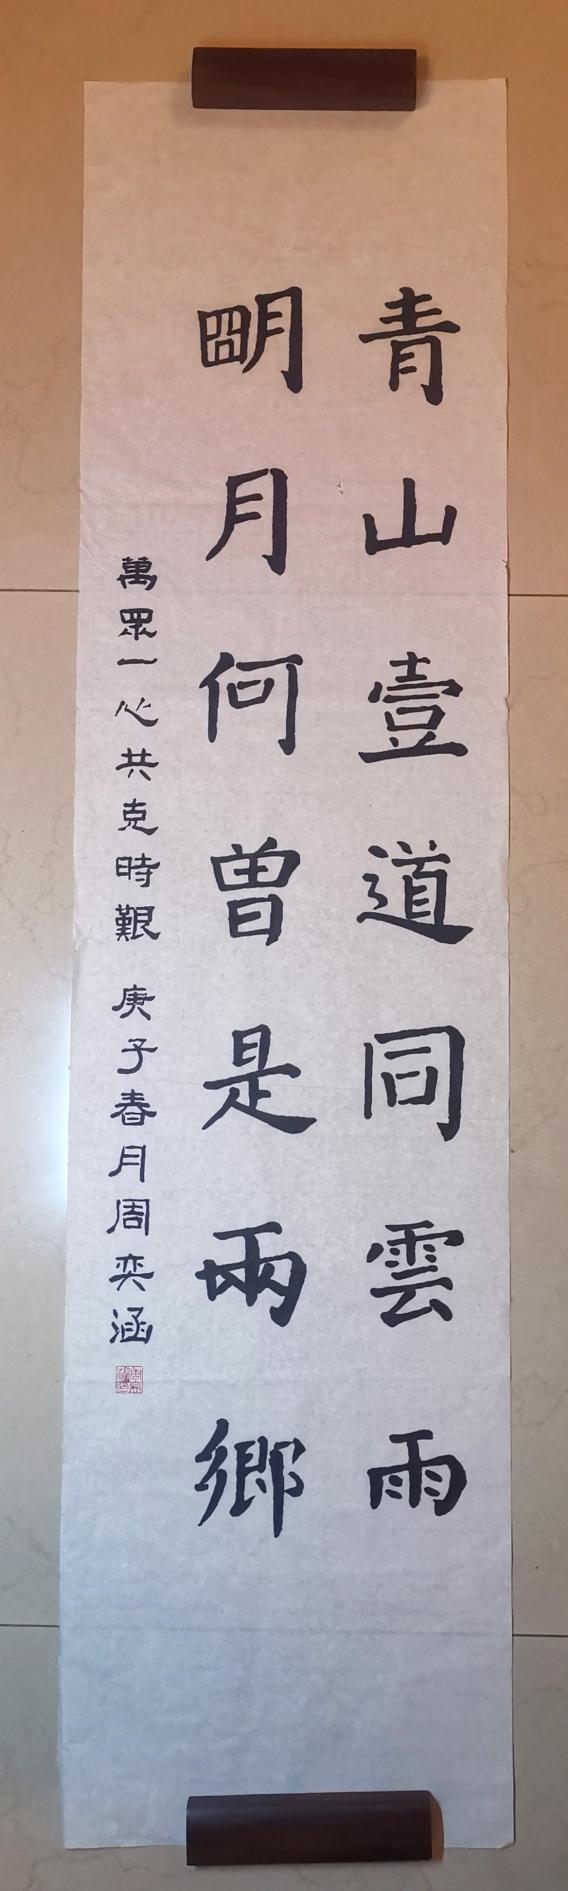 青山壹道同雲雨
朙月何曾是兩鄉
萬眾一心共克時艱 庚子春月周奕涵